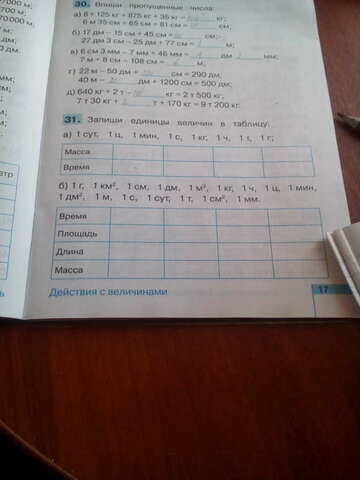 7000 м;
000 м.
30. Впиши пропущенные числа:
а) 8 т 125 кг + 875 кг + 35 кг = кг;
6 м 35 см + 65 см + 81 см = см;
б) 17 дм − 15 см + 45 см = см;
27 дм 3 см − 25 дм + 77 см = м;
в) 6 см 3 мм − 7 мм + 46 мм = дм мм;
7 м + 8 см − 108 см = м;
г) 22 м − 50 дм + см = 290 дм;
40 м − дм + 1200 см = 500 дм;
д) 640 кг + 2 т − кг = 2 т 500 кг;
7 т 30 кг + т + 170 кг = 9 т 200 кг.
31. Запиши единицы величин в таблицу:
а) 1 сут, 1 ц, 1 мин, 1 с, 1 кг, 1 ч, 1 т, 1 г;
Масса
Время
б) 1 г, 1 км², 1 см, 1 дм, 1 м², 1 кг, 1 ч, 1 ц, 1 мин,
1 дм², 1 м, 1 с, 1 сут, 1 т, 1 см², 1 мм.
Время
Площадь
Длина
Масса
Действия с величинами
17